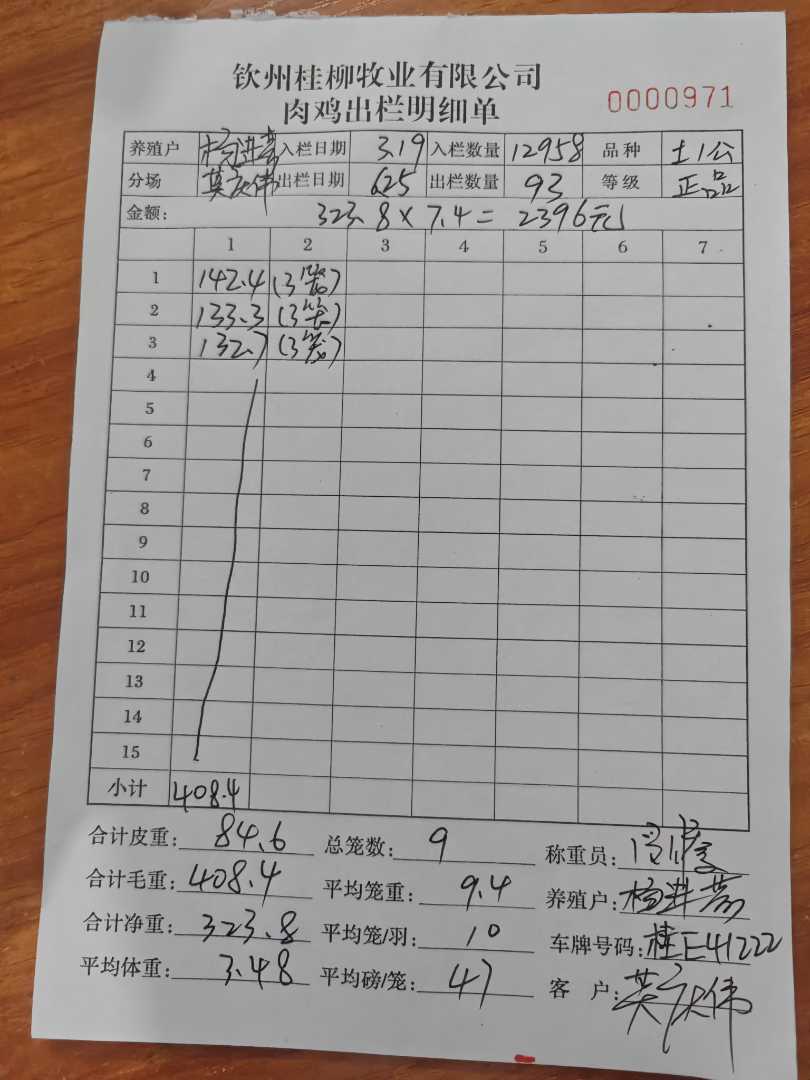 钦州桂柳牧业有限公司
肉鸡出栏明细单
0000971
养殖户 杨进芳 入栏日期 3.19 入栏数量 12958 品种 土1公
分场 莫庆伟 出栏日期 6.25 出栏数量 93 等级 正品
金额: 323.8×7.4=2396元
1 2 3 4 5 6 7
1 142.4 (3笼)
2 133.3 (3笼)
3 132.7 (3笼)
4
5
6
7
8
9
10
11
12
13
14
15
小计 408.4
合计皮重: 84.6 总笼数: 9 称重员:
合计毛重: 408.4 平均笼重: 9.4 养殖户: 杨进芳
合计净重: 323.8 平均笼/羽: 10 车牌号码: 桂E41222
平均体重: 3.48 平均磅/笼: 47 客户: 莫庆伟